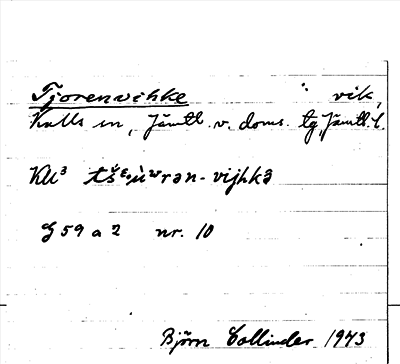 Tjorenvihke vik,
Kalls sn, Jämtl. v. doms. tg, Jämtl. l.
KU³ tšᵋ·ùʷrən-vijhkə̑
G 59 a 2 nr. 10
Björn Collinder 1943